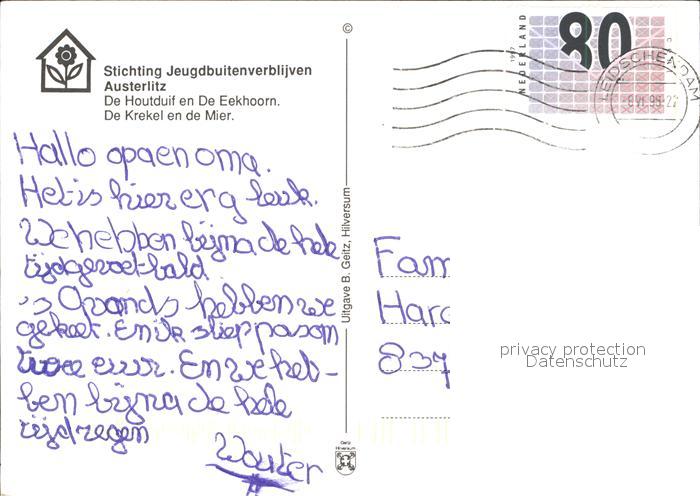 Stichting Jeugdbuitenverblijven
Austerlitz
De Houtduif en De Eekhoorn.
De Krekel en de Mier.
Hallo opa en oma.
Het is hier erg leuk.
We hebben bijna de hele
tijd gevoetbald
's avonds hebben we
gekeet. En ik sliep pas om
twee euur. En we heb-
ben bijna de hele
tijd regen
Wouter
©
Uitgave B. Geitz, Hilversum
Geitz
Hilversum
NEDERLAND
1997
80
LEIDSCHENDAM
Fam
Har
837
privacy protection
Datenschutz